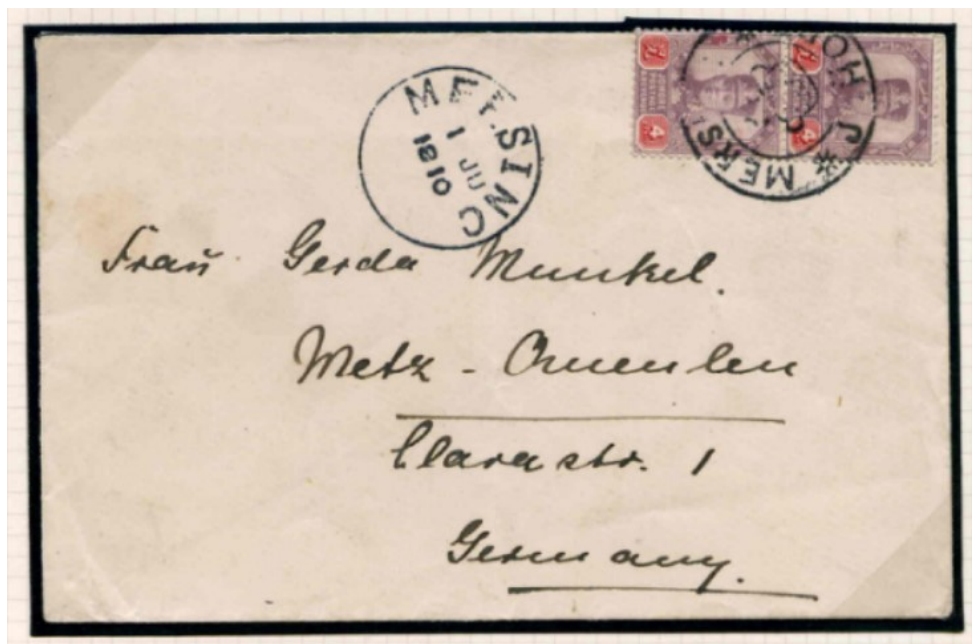 MERSING
1
JU
1910
MERS
JOHO
4
4
Frau Gerda Munkel.
Metz - Queulen
Clarastr. 1
Germany.